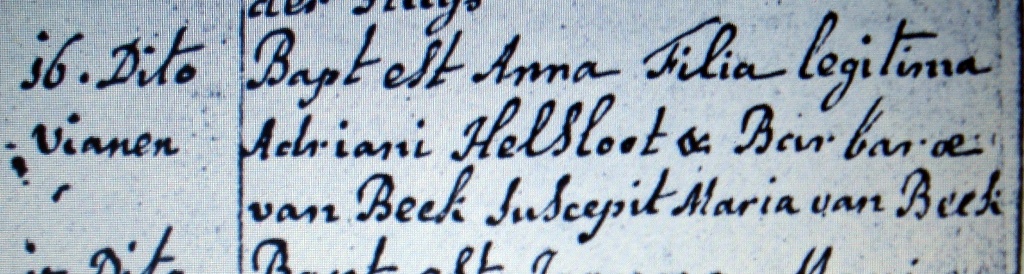 16. Dito Bapt est Anna Filia legitima
Vianen Adriani Helsloot & Barbaræ
van Beek Suscepit Maria van Beek
Dito Bapt est